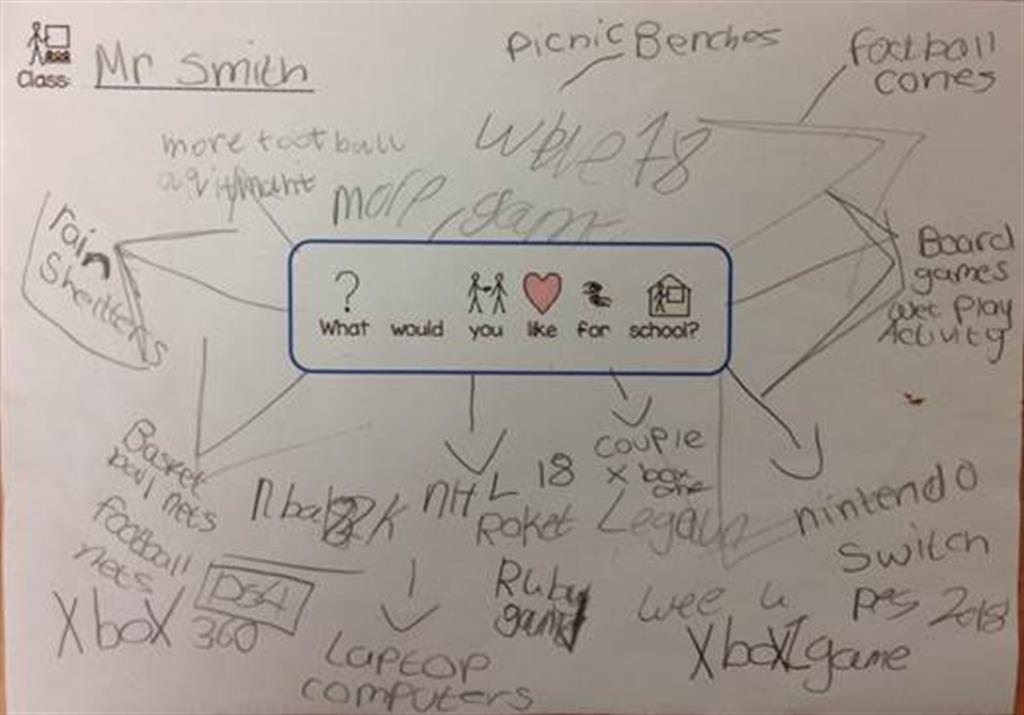 Class: Mr Smith
picnic Benches
football
cones
more football
more game
rain
Shelters
? What would you like for school?
Board
games
wet play
Activity
Basket
ball nets
football
nets
nba 2K
NHL 18
Roket
couple
x box
one
nintendo
switch
pes 2018
Ruby
game
wee u
PS4
Xbox 360
Laptop
computers
Xbox game